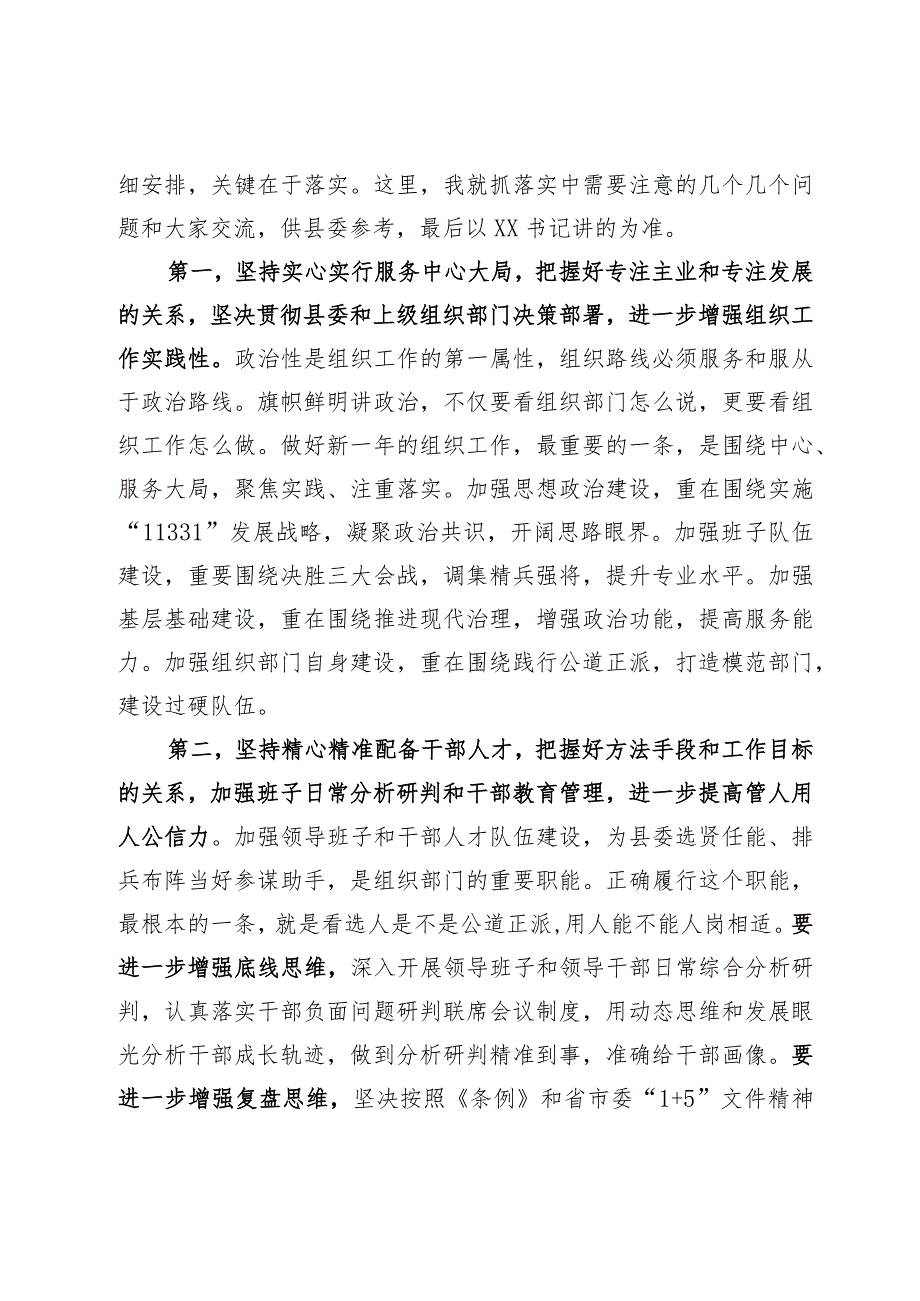 细安排，关键在于落实。这里，我就抓落实中需要注意的几个几个问
题和大家交流，供县委参考，最后以 XX 书记讲的为准。
第一，坚持实心实行服务中心大局，把握好专注主业和专注发展
的关系，坚决贯彻县委和上级组织部门决策部署，进一步增强组织工
作实践性。政治性是组织工作的第一属性，组织路线必须服务和服从
于政治路线。旗帜鲜明讲政治，不仅要看组织部门怎么说，更要看组
织工作怎么做。做好新一年的组织工作，最重要的一条，是围绕中心、
服务大局，聚焦实践、注重落实。加强思想政治建设，重在围绕实施
“11331”发展战略，凝聚政治共识，开阔思路眼界。加强班子队伍
建设，重要围绕决胜三大会战，调集精兵强将，提升专业水平。加强
基层基础建设，重在围绕推进现代治理，增强政治功能，提高服务能
力。加强组织部门自身建设，重在围绕践行公道正派，打造模范部门，
建设过硬队伍。
第二，坚持精心精准配备干部人才，把握好方法手段和工作目标
的关系，加强班子日常分析研判和干部教育管理，进一步提高管人用
人公信力。加强领导班子和干部人才队伍建设，为县委选贤任能、排
兵布阵当好参谋助手，是组织部门的重要职能。正确履行这个职能，
最根本的一条，就是看选人是不是公道正派,用人能不能人岗相适。要
进一步增强底线思维，深入开展领导班子和领导干部日常综合分析研
判，认真落实干部负面问题研判联席会议制度，用动态思维和发展眼
光分析干部成长轨迹，做到分析研判精准到事，准确给干部画像。要
进一步增强复盘思维，坚决按照《条例》和省市委“1+5”文件精神